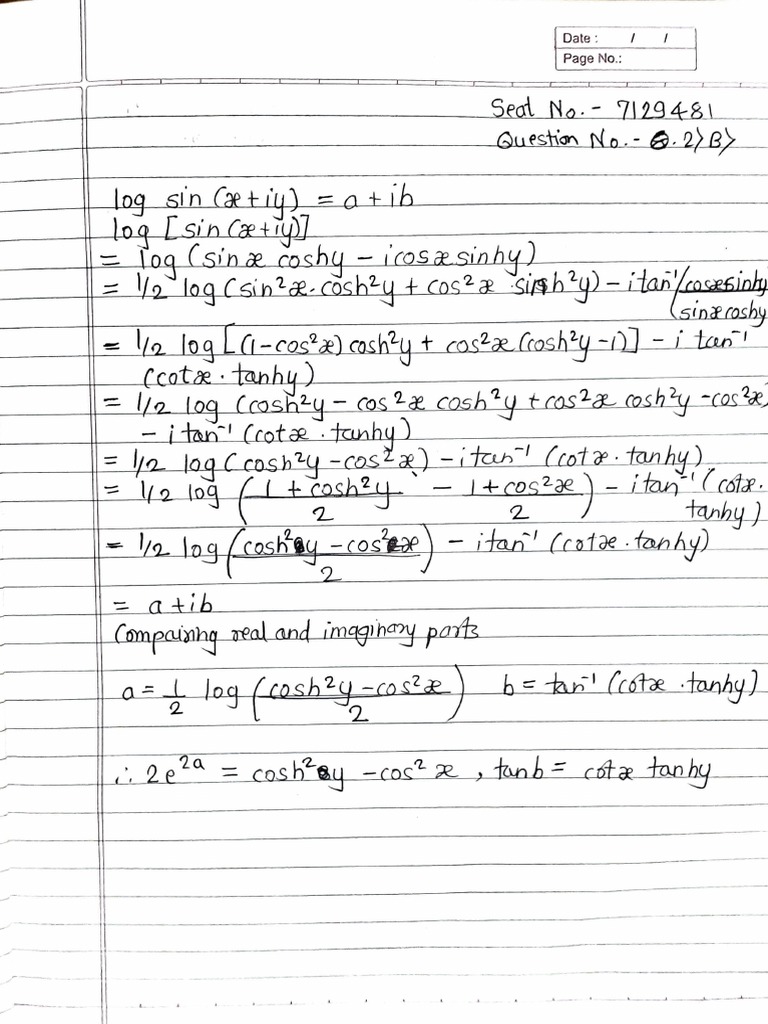 Date : / /
Page No.:
Seat No. - 7129481
Question No. - Q. 2) B)
log sin (x+iy) = a + ib
log [sin (x+iy)]
= log (sinx coshy - icosx sinhy)
= 1/2 log (sin²x. cosh²y + cos²x sinh²y) - i tan⁻¹ (cosxsinhy
(sinxcoshy
= 1/2 log [(1-cos²x) cosh²y + cos²x (cosh²y - 1)] - i tan⁻¹
(cotx. tanhy)
= 1/2 log (cosh²y - cos²x cosh²y + cos²x cosh²y - cos²x)
- i tan⁻¹ (cotx. tanhy)
= 1/2 log (cosh²y - cos²x) - i tan⁻¹ (cotx. tanhy)
= 1/2 log (1 + cosh2y / 2 - 1 + cos2x / 2) - i tan⁻¹ (cotx.
tanhy)
= 1/2 log (cosh2y - cos2x / 2) - i tan⁻¹ (cotx. tanhy)
= a + ib
Compairing real and imaginary parts
a = 1/2 log (cosh2y - cos2x / 2) b = tan⁻¹ (cotx. tanhy)
∴ 2e²ᵃ = cosh2y - cos2x , tanb = cotx tanhy